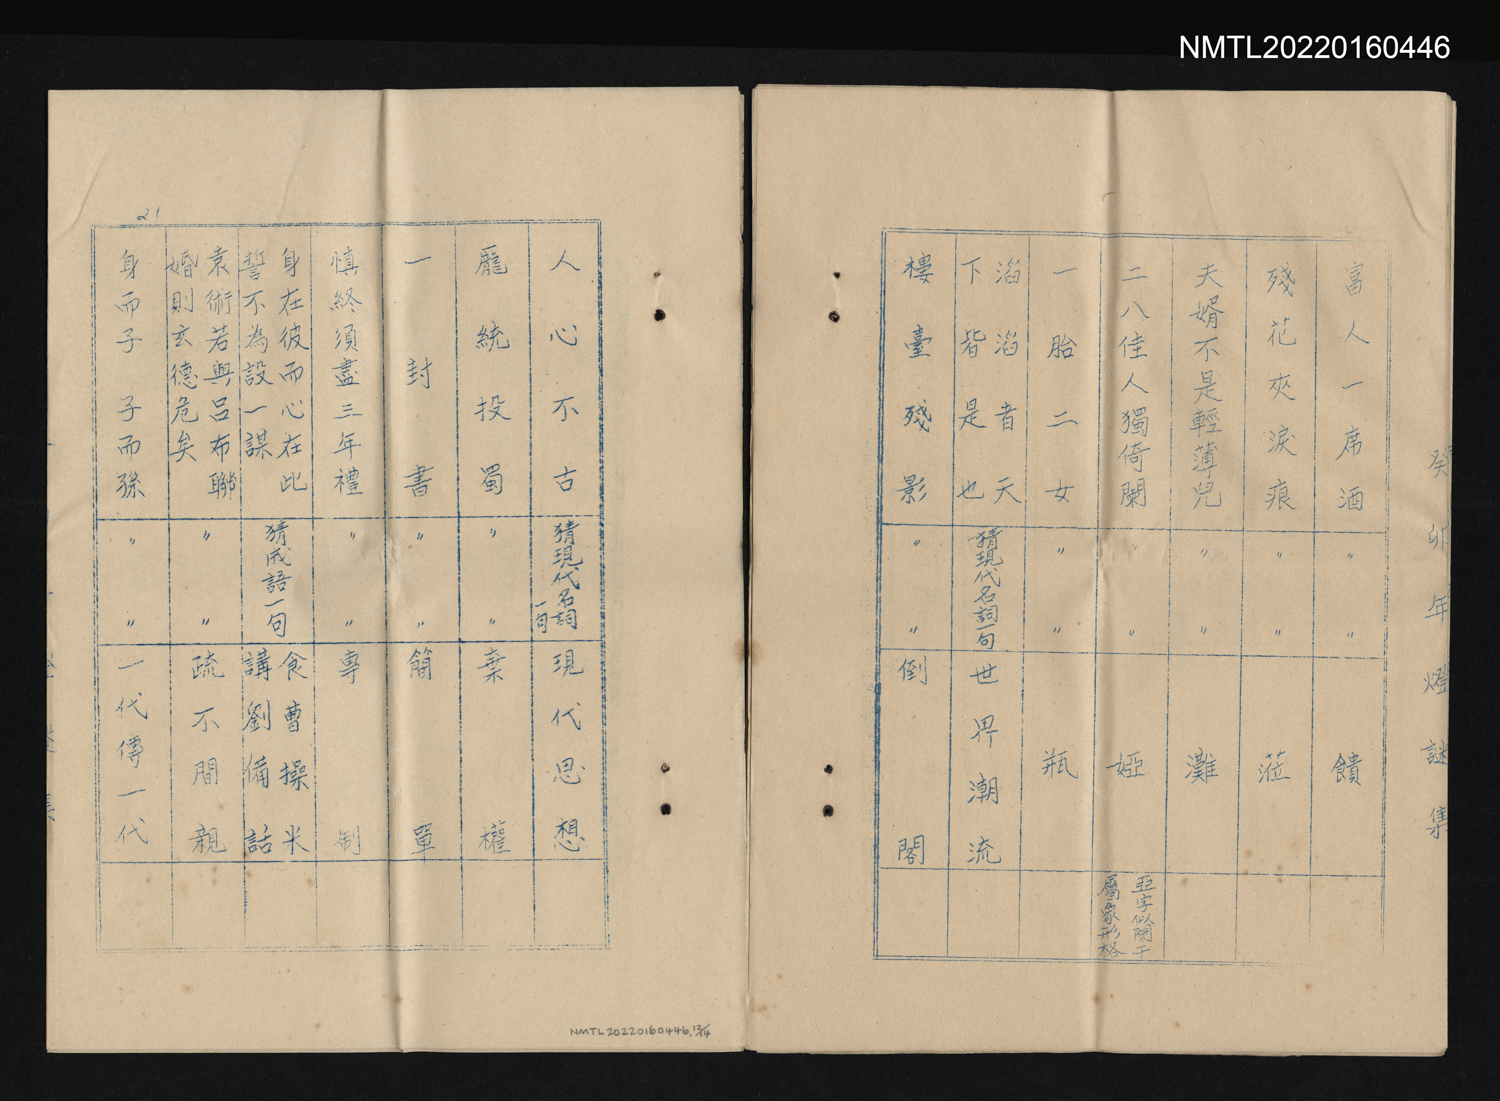 NMTL20220160446
癸卯年燈謎集
富人一席酒 〃 〃 饋
殘花夾淚痕 〃 〃 蒞
夫婿不是輕薄兒 〃 〃 灘
二八佳人獨倚闌 〃 〃 婭 亞字似闌干屬象形格
一胎二女 〃 〃 瓶
滔滔者天下皆是也 猜現代名詞一句 世界潮流
樓臺殘影 〃 〃 倒閣
21
人心不古 猜現代名詞一句 現代思想
龐統投蜀 〃 〃 棄權
一封書 〃 〃 簡單
慎終須盡三年禮 〃 〃 專制
身在彼而心在此誓不為設一謀 猜成語一句 食曹操米講劉備話
袁術若與呂布聯婚則玄德危矣 〃 〃 疏不間親
身而子子而孫 〃 〃 一代傳一代
NMTL20220160446,13/14